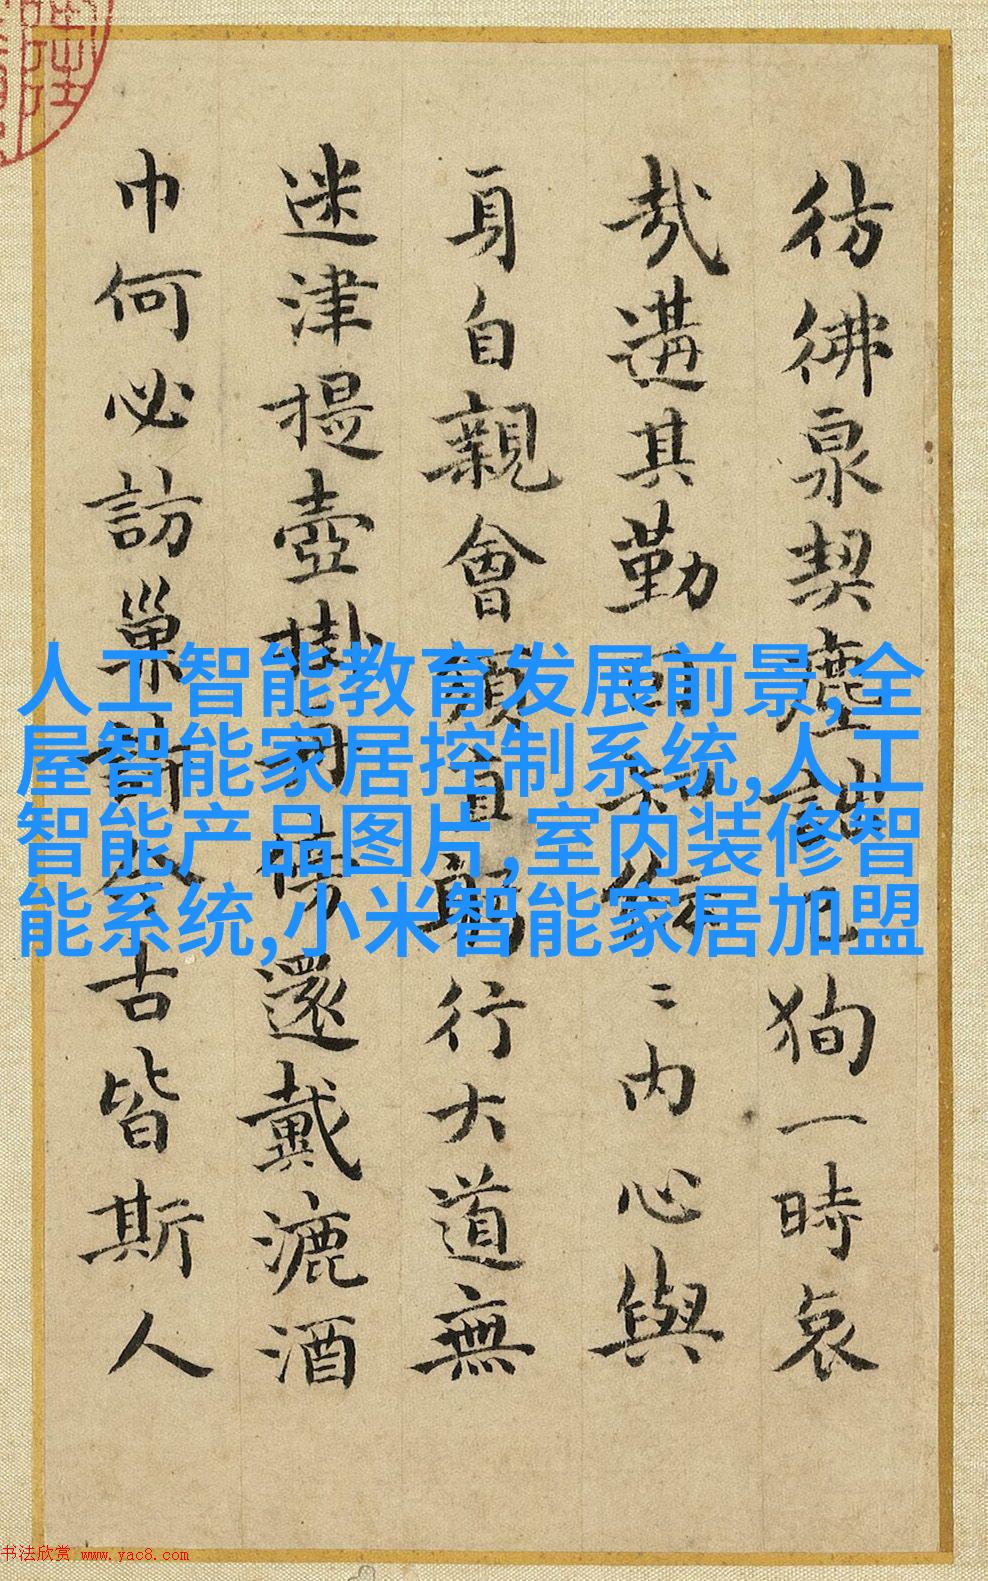 彷彿泉契塵諸已狥一時哀
哉遘其勤
内心與
身自親會須直躬行大道無
迷津提壺掛
還戴漉酒
巾何必訪巢許今古皆斯人
人工智能教育发展前景,全
屋智能家居控制系统,人工
智能产品图片,室内装修智
能系统,小米智能家居加盟
书法欣赏 www.yac8.com